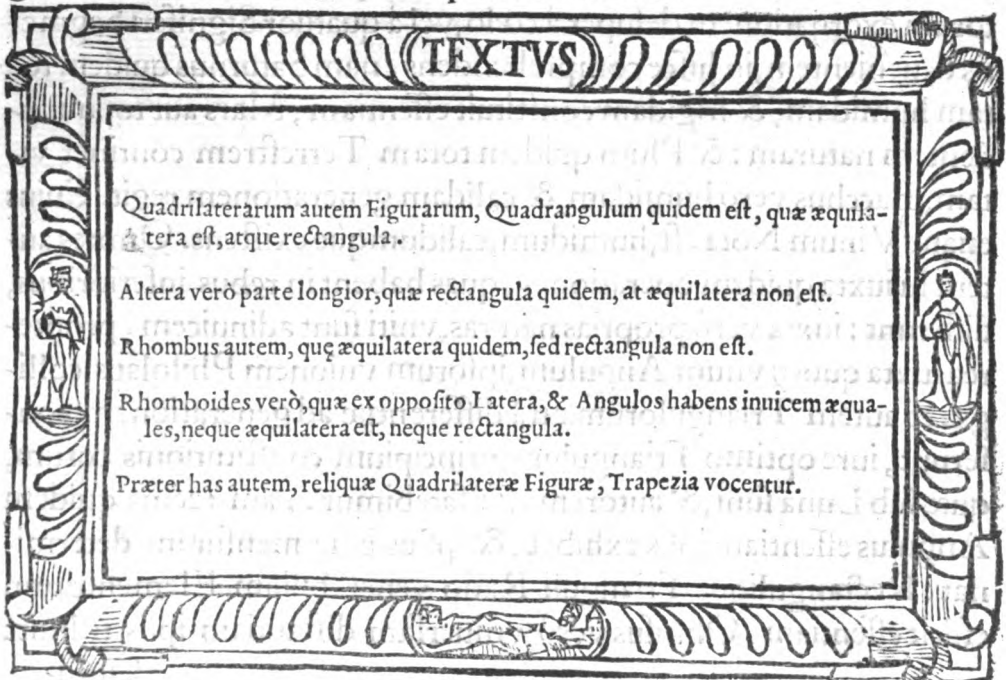 TEXTVS
Quadrilaterarum autem Figurarum, Quadrangulum quidem eſt, quæ æquila-
tera eſt, atque rectangula.
Altera verò parte longior, quæ rectangula quidem, at æquilatera non eſt.
Rhombus autem, quę æquilatera quidem, ſed rectangula non eſt.
Rhomboides verò, quæ ex oppoſito Latera, & Angulos habens inuicem æqua-
les, neque æquilatera eſt, neque rectangula.
Præter has autem, reliquæ Quadrilateræ Figuræ, Trapezia vocentur.